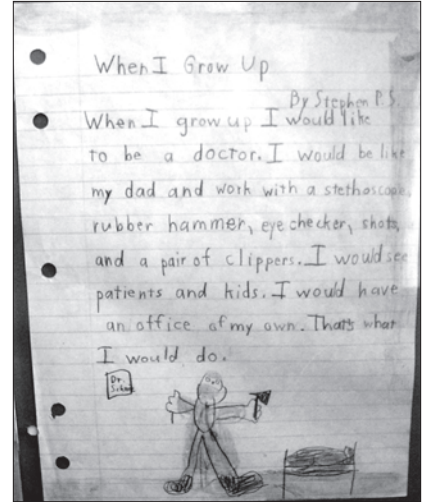 When I Grow Up
By Stephen P.S.
When I grow up I would like
to be a doctor. I would be like
my dad and work with a stethoscope,
rubber hammer, eye checker, shots,
and a pair of clippers. I would see
patients and kids. I would have
an office of my own. That's what
I would do.
Dr.